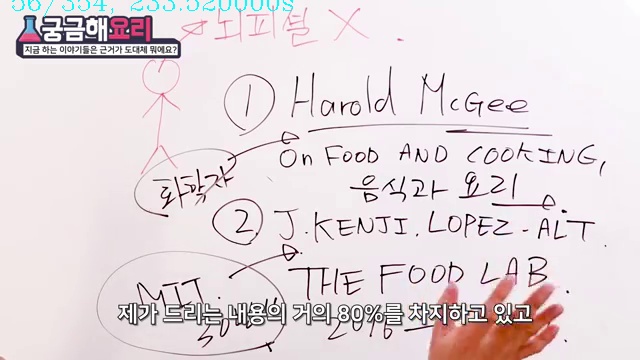 56/354, 233.520000s
궁금해요리
지금 하는 이야기들은 근거가 도대체 뭐에요?
뇌피셜 X.
① Harold McGee
ON FOOD AND COOKING,
화학자
음식과 요리
② J. KENJI. LOPEZ-ALT.
THE FOOD LAB.
MIT
제가 드리는 내용의 거의 80%를 차지하고 있고
20%